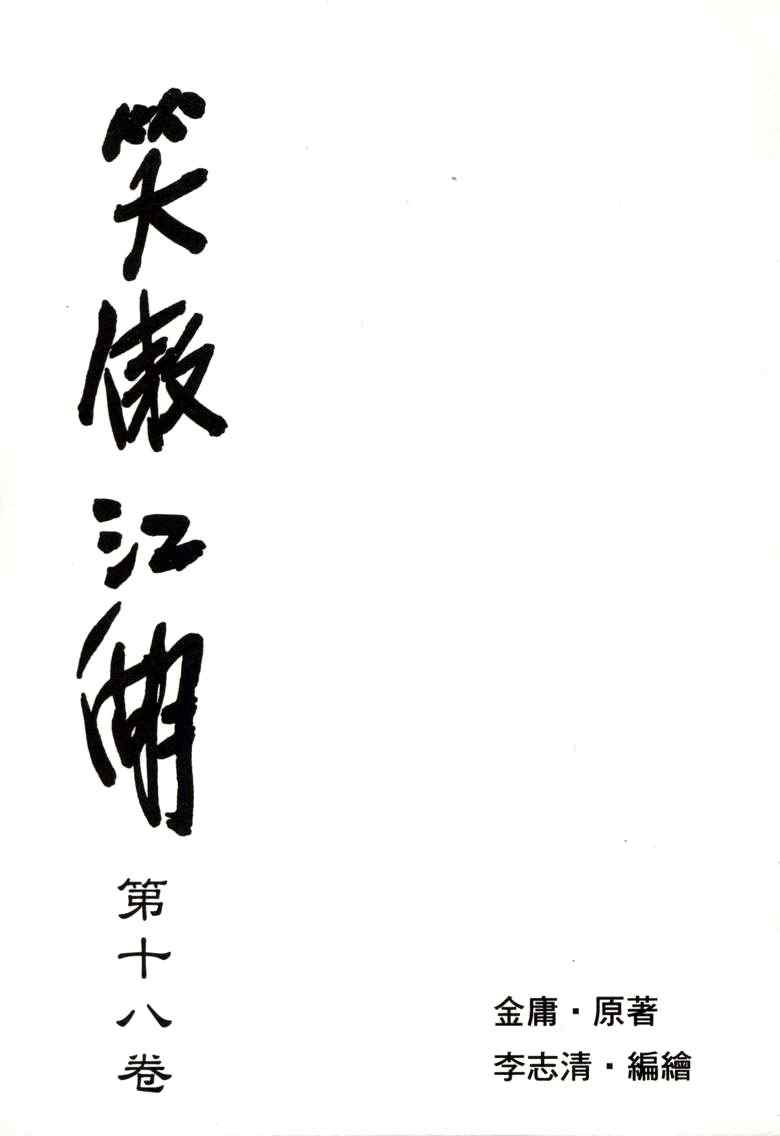 笑傲江湖
第十八卷
金庸·原著
李志清·編繪